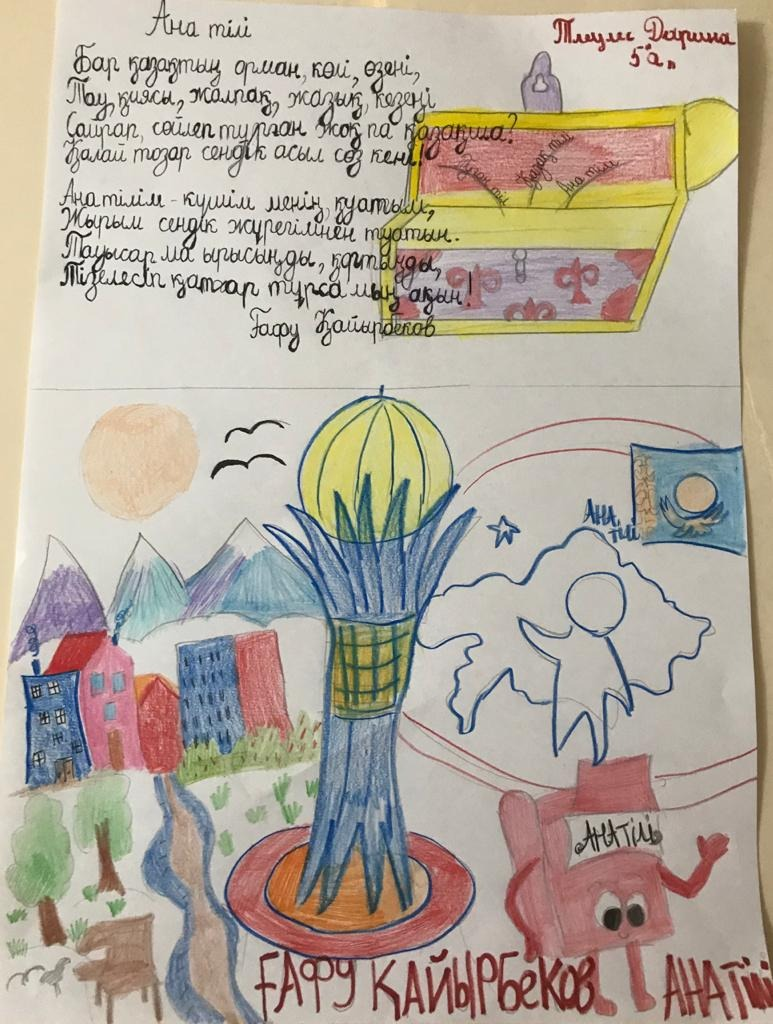 Ана тілі
Тлеулес Дарина
5 "а"
Бар қазақтың орман, көлі, өзені,
Тау, қиясы, жалпақ, жазық, кезеңі
Сайрап, сөйлеп тұрған жоқ па қазақша?
Қалай тозар сендік асыл сөз кені!
Ана тілім - күшім менің, қуатым,
Жырым сендік жүрегімнен туатын.
Тауысар ма ырысыңды, құтыңды,
Тізелесіп қатар тұрса мың ақын!
Ғафу Қайырбеков
Қазақ тілі
Ана тілі
АНА
ТІЛІ
АНА ТІЛІ
ҒАФУ ҚАЙЫРБЕКОВ
АНА Тілі